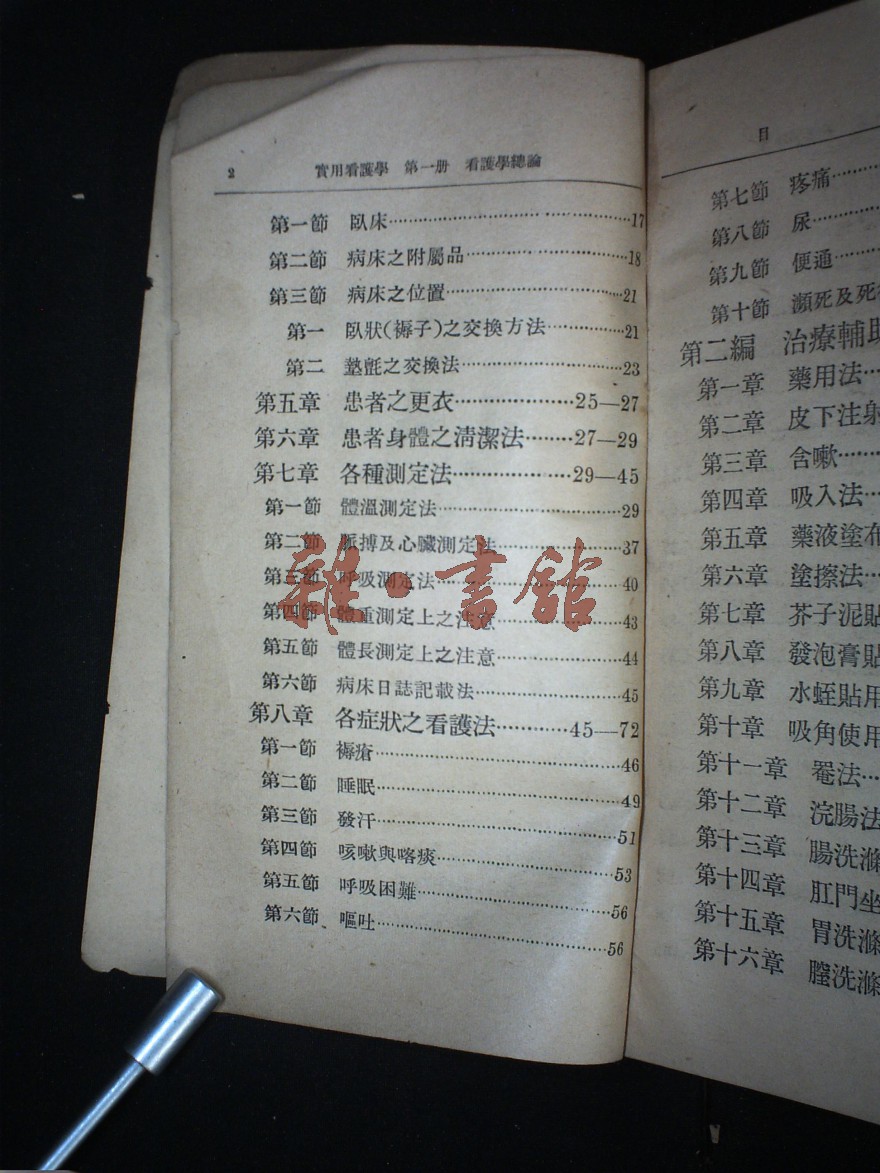 2　實用看護學　第一册　看護學總論
第一節　臥床……17
第二節　病床之附屬品……18
第三節　病床之位置……21
第一　臥狀(褥子)之交換方法……21
第二　墊氈之交換法……23
第五章　患者之更衣……25—27
第六章　患者身體之淸潔法……27—29
第七章　各種測定法……29—45
第一節　體溫測定法……29
第二節　脈搏及心臟測定法……37
第三節　呼吸測定法……40
第四節　體重測定上之注意……43
第五節　體長測定上之注意……44
第六節　病床日誌記載法……45
第八章　各症狀之看護法……45—72
第一節　褥瘡……46
第二節　睡眠……49
第三節　發汗……51
第四節　咳嗽與喀痰……53
第五節　呼吸困難……56
第六節　嘔吐……56
雜·書館
目
第七節　疼痛……
第八節　尿……
第九節　便通……
第十節　瀕死及死
第二編　治療輔助
第一章　藥用法……
第二章　皮下注射
第三章　含嗽……
第四章　吸入法……
第五章　藥液塗布
第六章　塗擦法……
第七章　芥子泥貼
第八章　發泡膏貼
第九章　水蛭貼用
第十章　吸角使用
第十一章　罨法……
第十二章　浣腸法
第十三章　腸洗滌
第十四章　肛門坐
第十五章　胃洗滌
第十六章　膣洗滌